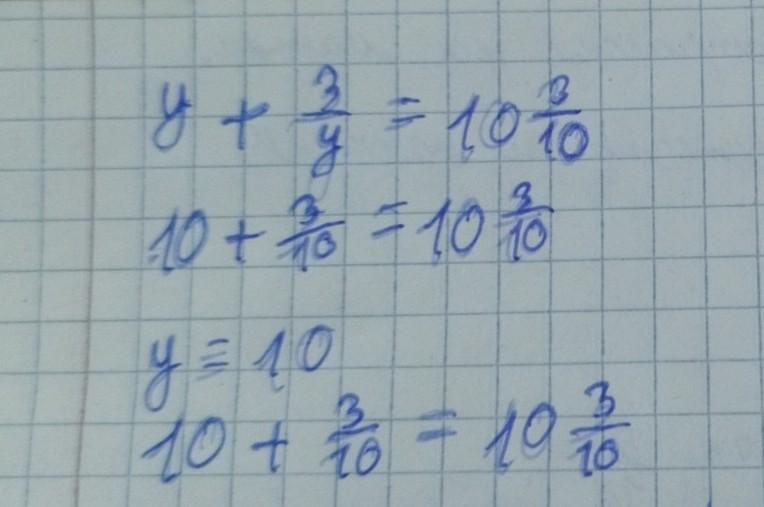 y + 3/y = 10 3/10
10 + 3/10 = 10 3/10
y = 10
10 + 3/10 = 10 3/10